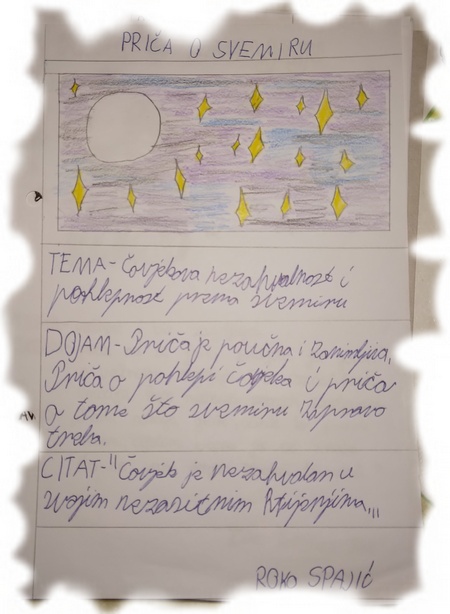 PRIČA O SVEMIRU
TEMA-Čovjekova nezahvalnost i
pohlepnost prema svemiru
DOJAM-Priča je poučna i zanimljiva.
Priča o pohlepi čovjeka i priča
o tome što svemiru zapravo
treba.
CITAT-"Čovjek je nezahvalan u
svojim nezasitnim htijenjima,,,
ROKO SPAJIĆ